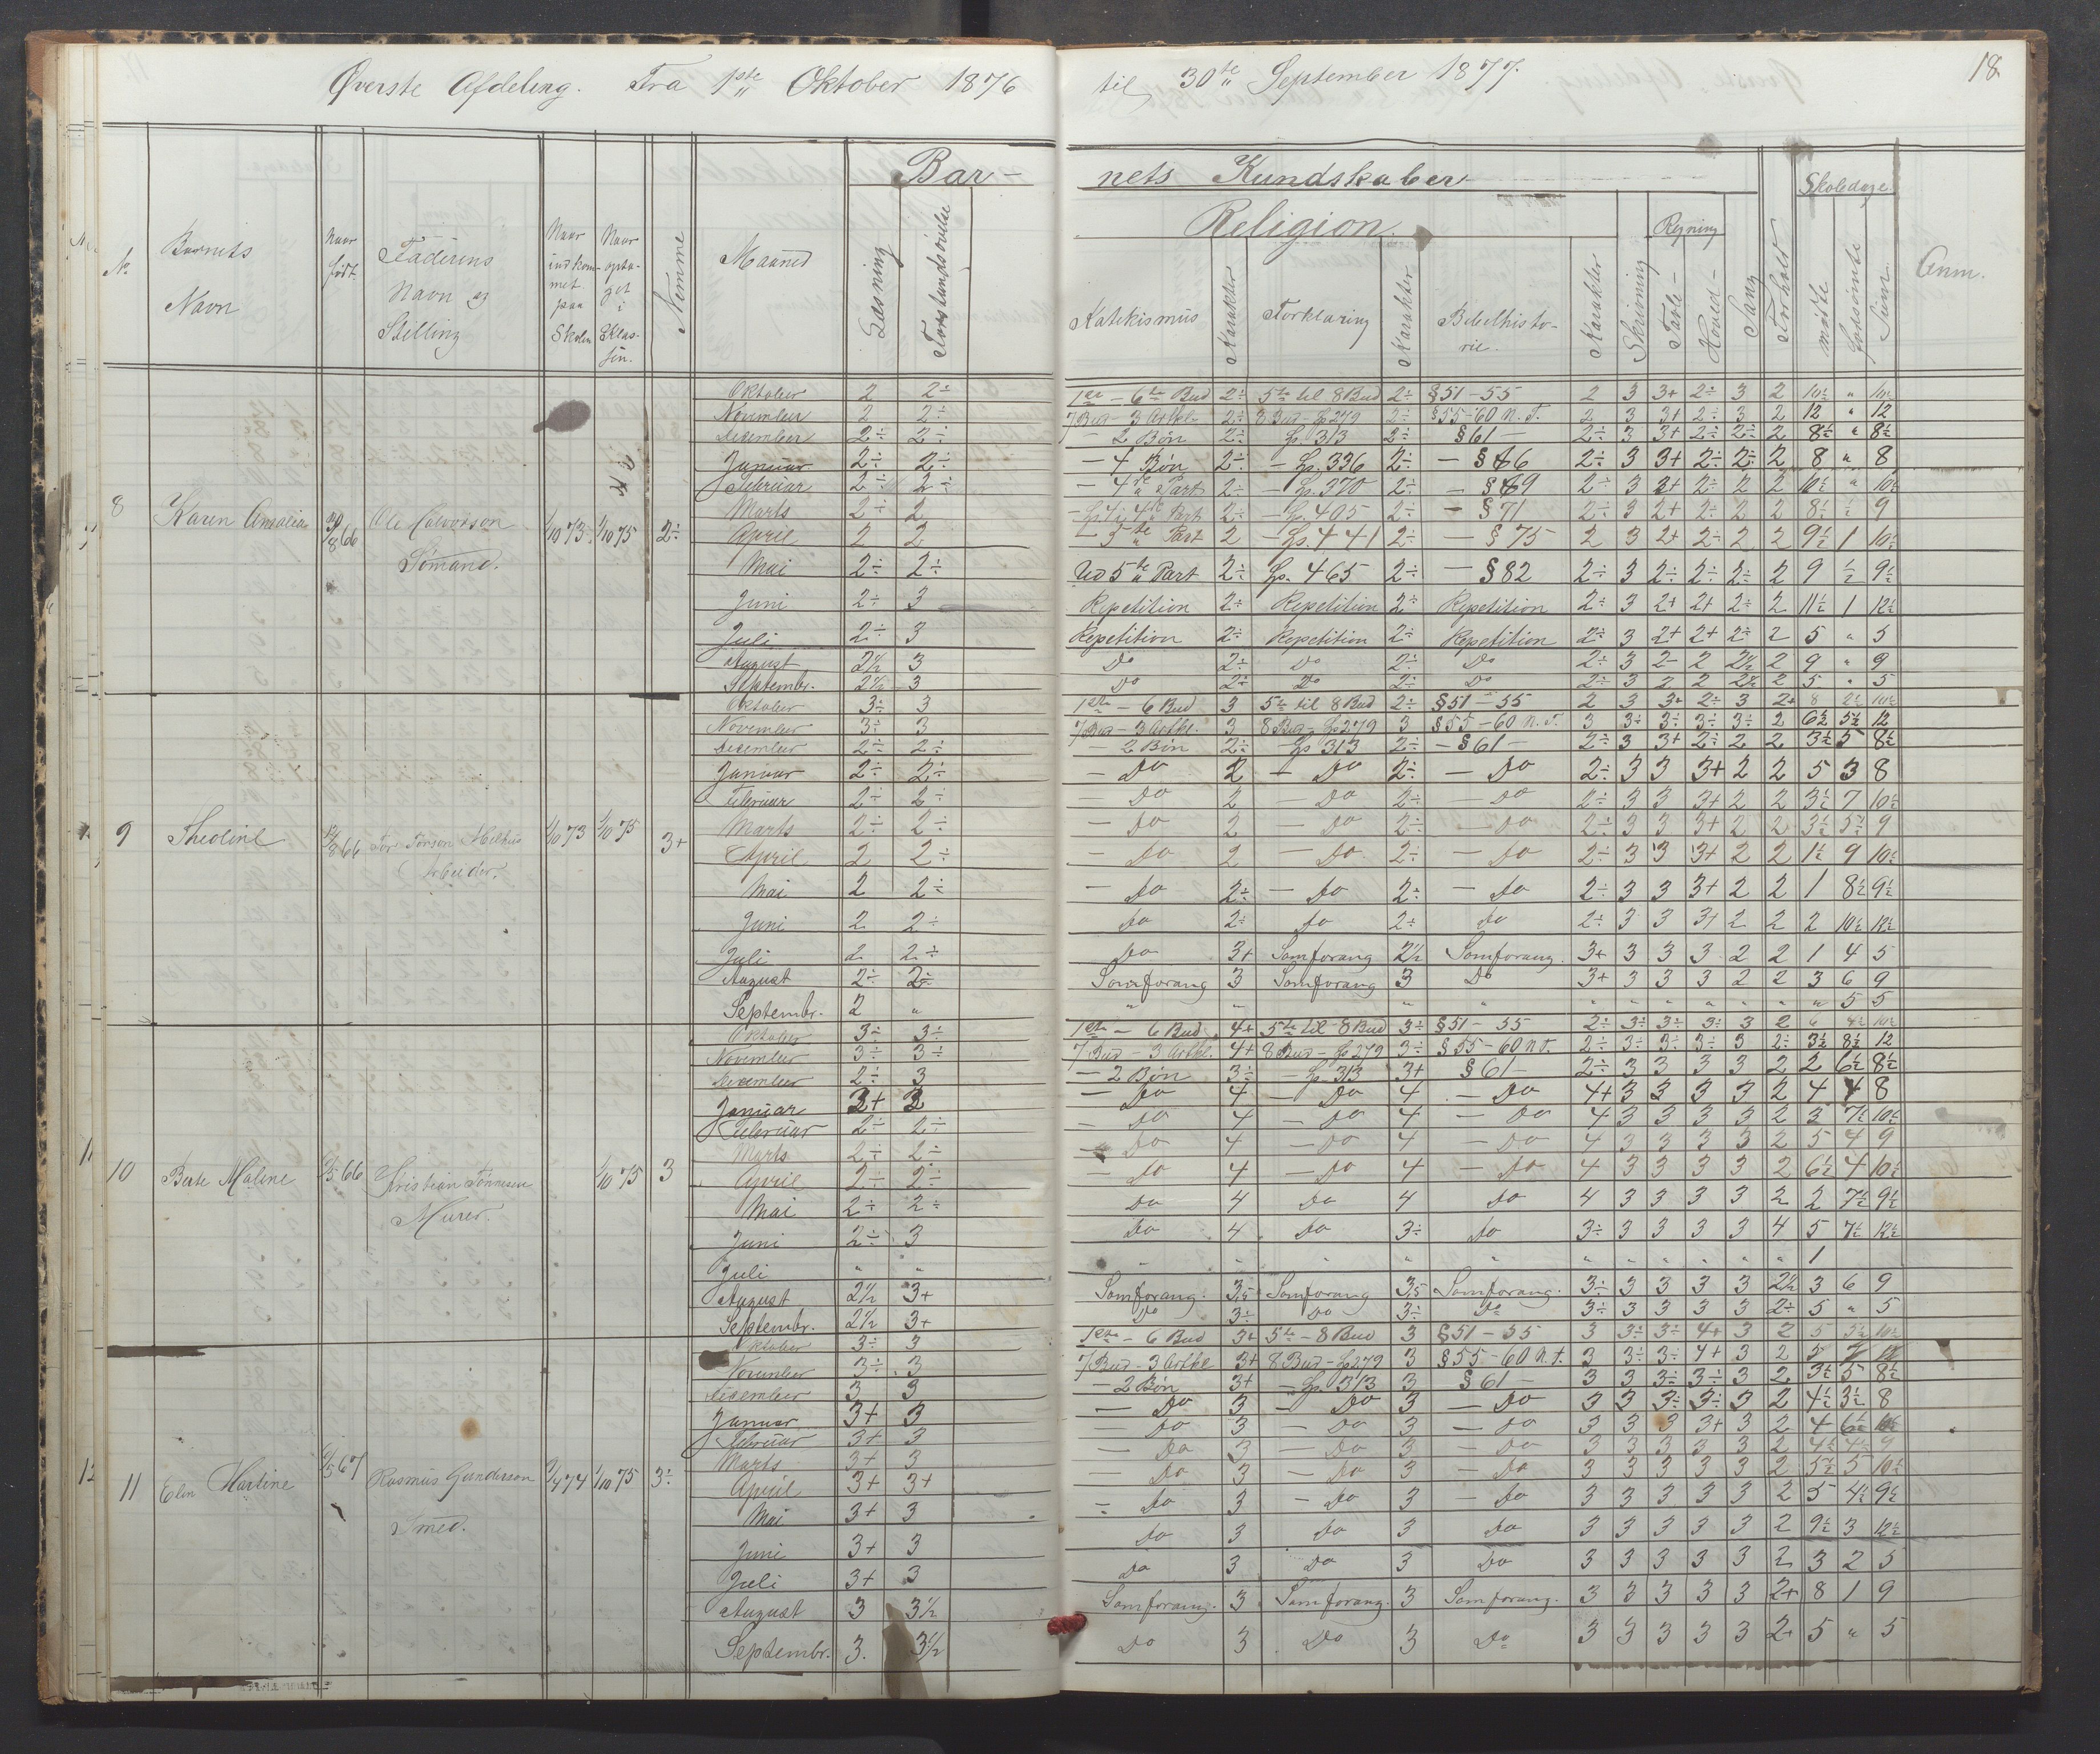 Øverste Afdeling. Fra 1ste Oktober 1876 til 30te September 1877. 18.
Bar- nets Kundskaber Skoledage
Religion. Regning
No Barnets Navn Naar født. Faderens Navn og Stilling Naar indkommet paa Skolen Naar optaget i Klassen. Nemme Maaned Læsning Forstandsøvelse Katekismus Karakter Forklaring Karakter Bibelhistorie. Karakter Skrivning Tavle- Hoved- Sang Forhold mødte forsømte Sum. Anm.
8 Karen Amalia Ole Halvorson Sømand. 1/10 73. 1/10 75 2÷
Oktober 2 2÷ 1ste - 6te Bud 2÷ 5te til 8 Bud 2÷ §51-55 2 3 3+ 2÷ 3 2 10½ " 10½
November 2 2÷ 7 Bud - 3 Artkl. 2÷ 8 Bud - Sp. 279 2÷ §55-60 N.T. 2 3 3+ 2÷ 3 2 12 " 12
December 2÷ 2÷ - 2 Bøn 2÷ - Sp. 313 2÷ §61- 2÷ 3 3+ 2÷ 2÷ 2 8½ " 8½
Januar 2÷ 2÷ - 4 Bøn 2÷ - Sp. 336 2÷ - §66 2÷ 3 3+ 2÷ 2÷ 2 8 " 8
Februar 2÷ 2÷ - 4de Part 2÷ - Sp. 370 2÷ - §69 2÷ 3 2+ 2÷ 2 2 10½ " 10½
Marts 2÷ 2 - Sp. 4 i 4de Prt. 2÷ - Sp. 405 2÷ - §71 2÷ 3 2+ 2÷ 2 2 8½ ½ 9
April 2 2 - 5te Part 2 - Sp. 441 2÷ - §75 2 3 2+ 2÷ 2 2 9½ 1 10½
Mai 2÷ 2÷ Ud 5te Part 2÷ Sp. 465 2÷ - §82 2÷ 3 2÷ 2÷ 2÷ 2 9 ½ 9½
Juni 2÷ 3 Repetition 2÷ Repetition 2÷ Repetition 2÷ 3 2+ 2+ 2÷ 2 11½ 1 12½
Juli 2÷ 3 Repetition 2÷ Repetition 2÷ Repetition 2÷ 3 2+ 2+ 2÷ 2 5 " 5
August 2½ 3 Do 2÷ Do 2÷ Do 2÷ 3 2- 2 2½ 2 9 " 9
Septembr. 2½ 3 Do 2÷ Do 2÷ Do 2÷ 3 2 2 2½ 2 5 " 5
9 Theoline 66 Tor Tønson Melhus Arbeider. 1/10 73 1/10 75 3+
Oktober 3÷ 3 1ste - 6 Bud 3 5te til 8 Bud 2÷ §51-55 2 3 3+ 2÷ 3 2+ 8 2½ 10½
November 3÷ 3 7 Bud - 3 Artkl. 3 8 Bud - Sp. 279 3 §55-60 N.T. 3 3÷ 3÷ 3÷ 3÷ 2 6½ 5½ 12
December 2÷ 2÷ - 2 Bøn 2÷ - Sp. 313 2÷ - §61- 2÷ 3 3+ 2÷ 2 2 3½ 5 8½
Januar 2÷ 2÷ - Do 2 - Do 2÷ - Do 2÷ 3 3 3+ 2 2 5 3 8
Februar 2÷ 2÷ - Do 2 - Do 2÷ - Do 2÷ 3 3 3+ 2 2 3½ 7 10½
Marts 2÷ 2÷ - Do 2 - Do 2÷ - Do 2÷ 3 3 3+ 2 2 3½ 5½ 9
April 2 2÷ - Do 2 - Do 2÷ - Do 2÷ 3 3 3+ 2 2 1½ 9 10½
Mai 2 2÷ - Do 2÷ - Do 2÷ - Do 2÷ 3 3 3+ 2 2 1 8½ 9½
Juni 2 2÷ Do 2÷ Do 2÷ Do 2÷ 3 3 3+ 2 2 2 10½ 12½
Juli 2 2÷ Do 3+ Somforang 2½ Somforang. 3+ 3 3 3 2 2 1 4 5
August 2÷ 2÷ Somforang 3 Somforang 3 Do 3+ 3 3 3 2 2 3 6 9
Septembr. 2 " " " " " " " " " " " " 5 5
10 Berte Maline 66 Kristian Tønnesen Murer. 1/10 75 3
Oktober 3÷ 3÷ 1ste - 6 Bud 4+ 5te til 8 Bud 3÷ §51-55 2÷ 3÷ 3÷ 3÷ 3 2 6 4½ 10½
November 3÷ 3÷ 7 Bud - 3 Artkl. 4+ 8 Bud - Sp 279 3÷ §55-60 N.T. 2÷ 3÷ 3÷ 3÷ 3 2÷ 3½ 8½ 12
December 2÷ 3 - 2 Bøn 3÷ - Sp. 313 3+ §61- 2÷ 3 3 3 3 2 2 6½ 8½
Januar 3+ 3 - Do 4 - Do 4 - Do 4+ 3 3 3 3 2 4 4 8
Februar 2÷ 2÷ - Do 4 - Do 4 - Do 4 3 3 3 3 2 3 7½ 10½
Marts 2÷ 2÷ - Do 4 - Do 4 - Do 4 3 3 3 3 2 5 4 9
April 2÷ 2÷ - Do 4 - Do 4 - Do 4 3 3 3 3 2 6½ 4 10½
Mai 2÷ 2÷ Do 4 Do 4 Do 4 3 3 3 3 2 2 7½ 9½
Juni 2÷ 3 Do 4 Do 3÷ Do 3÷ 3 3 3 3 4 5 7½ 12½
Juli " " " " " " " " " " " " " 1
August 2½ 3+ Somforang. 3,5 Somforang 3,5 Somforang. 3÷ 3 3 3 3 2½ 3 6 9
Septembr. 2½ 3+ Do 3÷ Do 3÷ Do 3÷ 3 3 3 3 2÷ 5 " 5
11 Elen Martine 67 Rasmus Gunderson Smed. 74 1/10 75 3÷
Oktober 3÷ 3 1ste - 6 Bud 3+ 5te - 8 Bud 3 §51-55 3 3÷ 3÷ 4+ 3 2 5 5½ 10½
November 3÷ 3 7 Bud - 3 Artkl 3+ 8 Bud - Sp 279 3 §55-60 N.T. 3 3÷ 3÷ 4+ 3 2 5 7 12
December 3 3 - 2 Bøn 3+ - Sp. 313 3 §61- 3 3 3÷ 3÷ 3 2 3½ 5 8½
Januar 3+ 3 - Do 3 - Do 3 - Do 3 3 3÷ 3÷ 3 2 4½ 3½ 8
Februar 3+ 3 - Do 3 - Do 3 - Do 3 3 3 3+ 3 2 4 6½ 10½
Marts 3+ 3 - Do 3 - Do 3 - Do 3 3 3 3 3 2 4½ 4½ 9
April 3+ 3+ - Do 3 - Do 3 - Do 3 3 3 3 3 2 5½ 5 10½
Mai 3+ 3 - Do 3 - Do 3 - Do 3 3 3 3 3 2 5 4½ 9½
Juni 3+ 3 Do 3 Do 3 Do 3 3 3 3 3 2 9½ 3 12½
Juli 3+ 3 Do 3 Do 3 Do 3 3 3 3 3 2 3 2 5
August 3 3½ Somforang. 3 Somforang. 3 Somforang. 3 3 3 3 3 2+ 8 1 9
Septembr. 3. 3½ Do 3 Do 3 Do 3 3 3 3 3 2+ 5 " 5